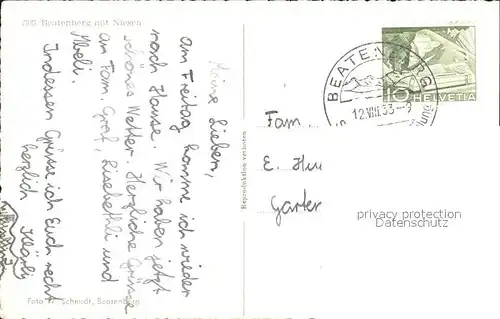 7205 Beatenberg mit Niesen
Meine Lieben,
am Freitag komme ich wieder
nach Hause. Wir haben jetzt
schönes Wetter. Herzliche Grüsse
an Fam. Graf, Lisebethli und
Indessen Grüsse ich Euch recht
herzlich Klärli
Foto W. Schmidt, Beatenberg
Reproduktion verboten
BEATENBERG
12.VIII.53-9
10 HELVETIA
Fam.
E.
Garter
privacy protection
Datenschutz